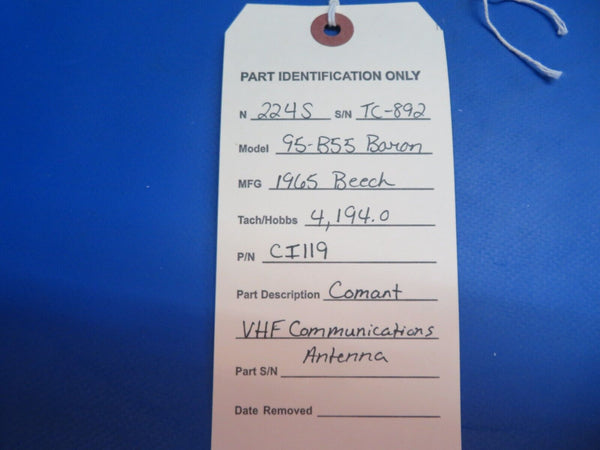 PART IDENTIFICATION ONLY
N 224S S/N TC-892
Model 95-B55 Baron
MFG 1965 Beech
Tach/Hobbs 4,194.0
P/N CI119
Part Description Comant
VHF Communications
Antenna
Part S/N
Date Removed